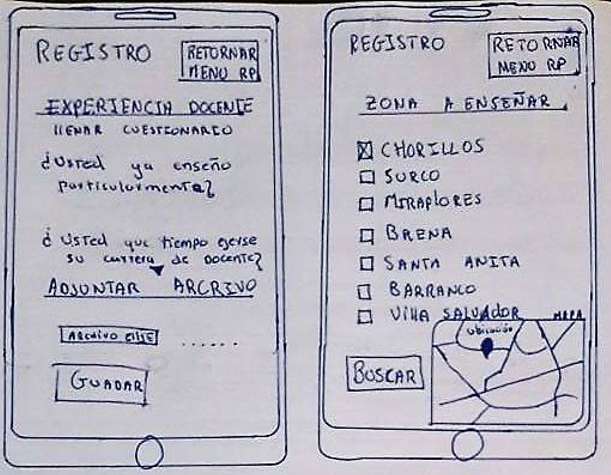 REGISTRO
RETORNAR
MENU RP
EXPERIENCIA DOCENTE
llENAR CUESTIONARIO
¿Usted ya enseño
particularmente?
¿Usted que tiempo ejerse
su carrera de docente?
ADJUNTAR ARCRIVO
ARCHIVO ......
GUADAR
REGISTRO
RETORNAR
MENU RP
ZONA A ENSEÑAR
CHORILLOS
SURCO
MIRAFLORES
BRENA
SANTA ANITA
BARRANCO
VIllA SALVADOR
MAPA
Ubicación
BUSCAR